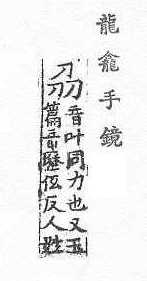 龍龕手鏡
刕
音叶同力也又玉
篇歷伍反人姓